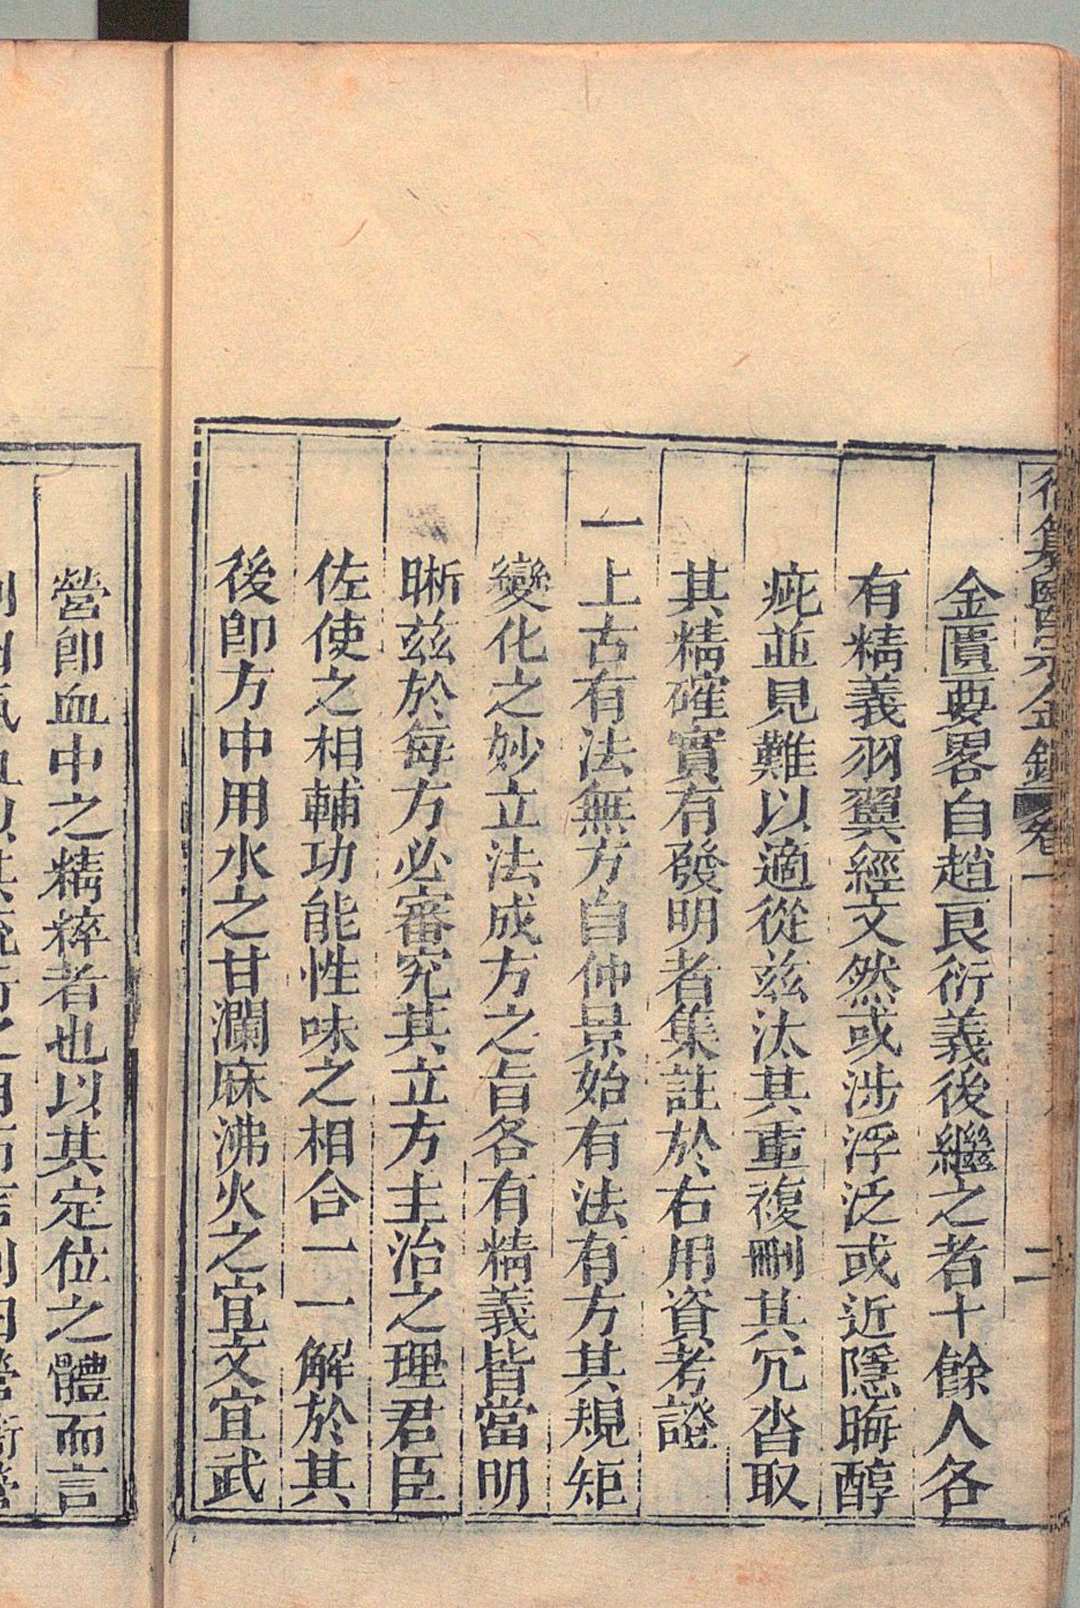 金匱要畧自趙良衍義後繼之者十餘人各
有精義羽翼經文然或涉浮泛或近隱晦醇
疵並見難以適從玆汰其重複刪其冗沓取
其精確實有發明者集註於右用資考證
一上古有法無方自仲景始有法有方其規矩
變化之妙立法成方之旨各有精義皆當明
晰玆於每方必審究其立方主治之理君臣
佐使之相輔功能性味之相合一一解於其
後卽方中用水之甘瀾麻沸火之宜文宜武
營卽血中之精粹者也以其定位之體而言